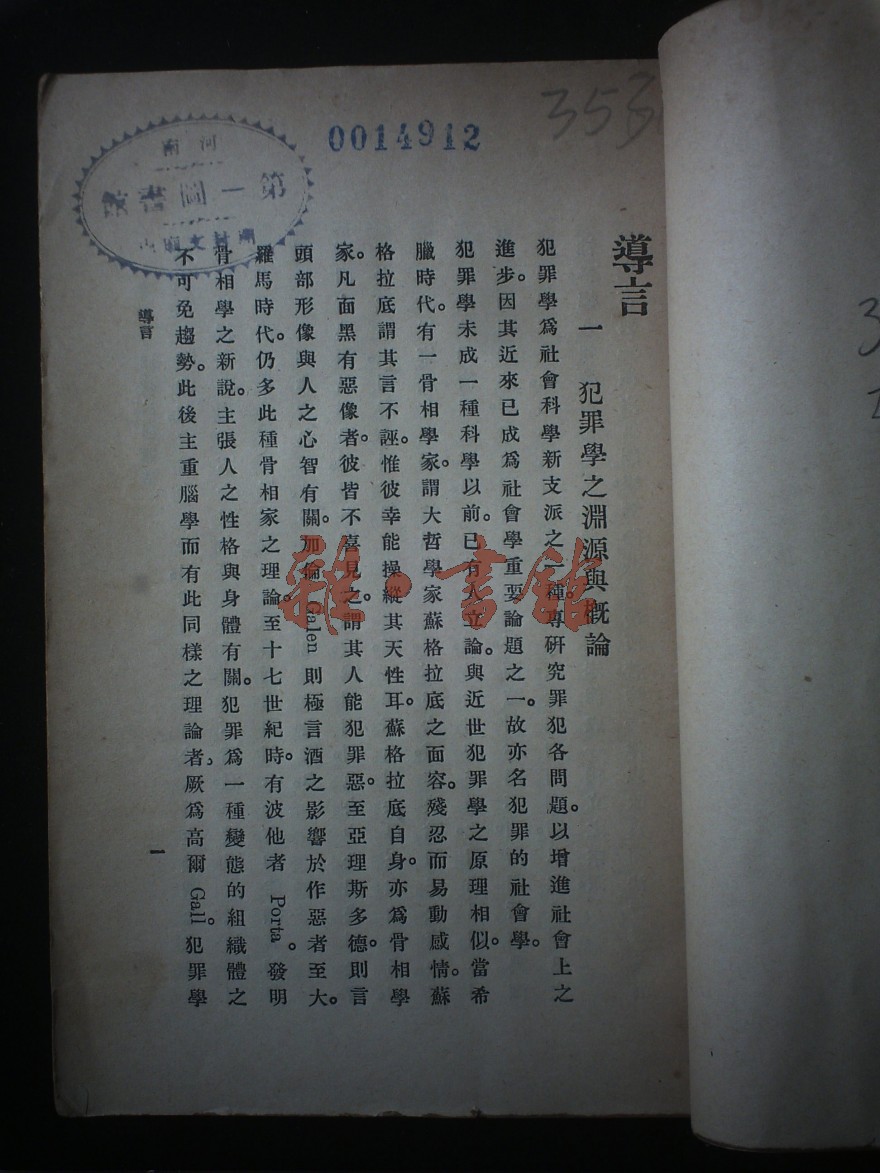 0014912
353
河南
第一圖書館
導言
一 犯罪學之淵源與概論
犯罪學爲社會科學新支派之一種。專研究罪犯各問題。以增進社會上之
進步。因其近來已成爲社會學重要論題之一。故亦名犯罪的社會學。
犯罪學未成一種科學以前。已有人立論。與近世犯罪學之原理相似。當希
臘時代。有一骨相學家。謂大哲學家蘇格拉底之面容。殘忍而易動感情。蘇
格拉底謂其言不誣。惟彼幸能操縱其天性耳。蘇格拉底自身。亦爲骨相學
家。凡面黑有惡像者。彼皆不喜見之。謂其人能犯罪惡。至亞理斯多德。則言
頭部形像與人之心智有關。加倫 Galen 則極言酒之影響於作惡者至大。
羅馬時代。仍多此種骨相家之理論。至十七世紀時。有波他者 Porta。發明
骨相學之新說。主張人之性格與身體有關。犯罪爲一種變態的組織體之
不可免趨勢。此後主重腦學而有此同樣之理論者，厥爲高爾 Gall。犯罪學
導言
一
雜·書館